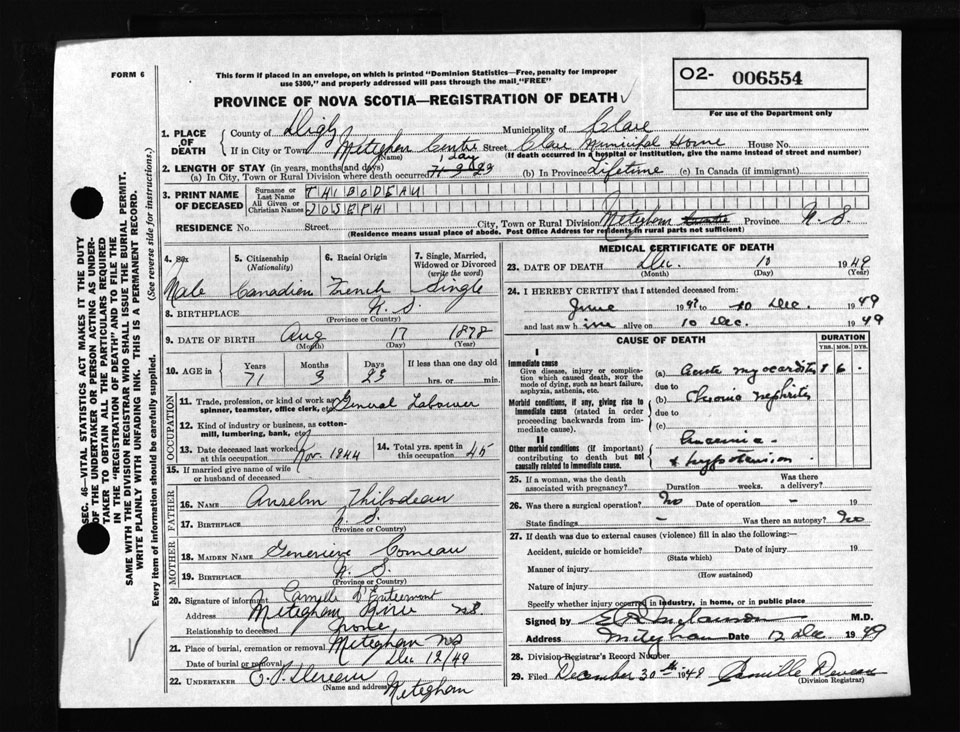 FORM 6
This form if placed in an envelope, on which is printed "Dominion Statistics—Free, penalty for improper
use $300," and properly addressed will pass through the mail "FREE"
O2- 006554
For use of the Department only
PROVINCE OF NOVA SCOTIA—REGISTRATION OF DEATH
1. PLACE OF DEATH
County of Digby Municipality of Clare
If in City or Town Meteghan Centre Street Clare Municipal Home House No.
(Name) (If death occurred in a hospital or institution, give the name instead of street and number)
2. LENGTH OF STAY (in years, months and days) 1 day
(a) In City, Town or Rural Division where death occurred (b) In Province Lifetime (c) In Canada (if immigrant)
3. PRINT NAME OF DECEASED
Surname or Last Name THIBODEAU
All Given or Christian Names JOSEPH
RESIDENCE No. Street City, Town or Rural Division Meteghan Province N. S.
(Residence means usual place of abode. Post Office Address for residents in rural parts not sufficient)
4. Sex Male
5. Citizenship (Nationality) Canadian
6. Racial Origin French
7. Single, Married, Widowed or Divorced (write the word) Single
8. BIRTHPLACE N. S.
(Province or Country)
9. DATE OF BIRTH Aug 17 1878
(Month) (Day) (Year)
10. AGE in Years Months Days If less than one day old
71 3 23 hrs. or min.
OCCUPATION
11. Trade, profession, or kind of work as spinner, teamster, office clerk, etc. General Labourer
12. Kind of industry or business, as cotton-mill, lumbering, bank, etc.
13. Date deceased last worked at this occupation Nov. 1944
14. Total yrs. spent in this occupation 45
15. If married give name of wife or husband of deceased
FATHER
16. NAME Anselm Thibodeau
17. BIRTHPLACE N. S.
(Province or Country)
MOTHER
18. MAIDEN NAME Genevieve Comeau
19. BIRTHPLACE N. S.
(Province or Country)
20. Signature of informant Camille D'Entremont
Address Meteghan River NS
Relationship to deceased None
21. Place of burial, cremation or removal Meteghan NS
Date of burial or removal Dec 12/49
22. UNDERTAKER
(Name and address) Meteghan
MEDICAL CERTIFICATE OF DEATH
23. DATE OF DEATH Dec. 10 1949
(Month) (Day) (Year)
24. I HEREBY CERTIFY that I attended deceased from:
June 19 to 10 Dec. 1949
and last saw him alive on 10 Dec. 1949
CAUSE OF DEATH
DURATION
YRS. MOS. DYS.
I
Immediate cause
Give disease, injury or complication which caused death, NOT the mode of dying, such as heart failure, asphyxia, asthenia, etc.
(a) Acute myocarditis
due to
Morbid conditions, if any, giving rise to immediate cause (stated in order proceeding backwards from immediate cause).
(b) Chronic nephritis
due to
(c)
II
Other morbid conditions (if important) contributing to death but not causally related to immediate cause.
Anaemia
& hypotension
25. If a woman, was the death associated with pregnancy? Duration weeks. Was there a delivery?
26. Was there a surgical operation? No Date of operation - 19
State findings - Was there an autopsy? No
27. If death was due to external causes (violence) fill in also the following:—
Accident, suicide or homicide? Date of injury 19
(State which)
Manner of injury
(How sustained)
Nature of injury
Specify whether injury occurred in industry, in home, or in public place
Signed by M.D.
Address Meteghan Date 12 Dec. 1949
28. Division Registrar's Record Number
29. Filed December 30th 1949 Camille Deveau
(Division Registrar)
SEC. 46—VITAL STATISTICS ACT MAKES IT THE DUTY
OF THE UNDERTAKER OR PERSON ACTING AS UNDER-
TAKER TO OBTAIN ALL THE PARTICULARS REQUIRED
IN THE "REGISTRATION OF DEATH" AND TO FILE THE
SAME WITH THE DIVISION REGISTRAR WHO SHALL ISSUE THE BURIAL PERMIT.
WRITE PLAINLY WITH UNFADING INK. THIS IS A PERMANENT RECORD.
Every item of information should be carefully supplied. (See reverse side for instructions.)